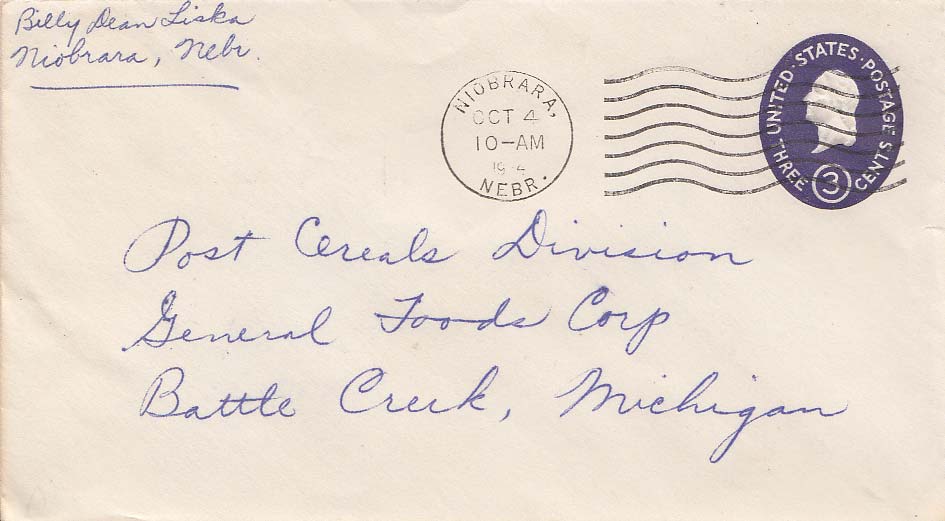 Billy Dean Liska
Niobrara, Nebr.
NIOBRARA,
OCT 4
10-AM
NEBR.
UNITED STATES POSTAGE
THREE 3 CENTS
Post Cereals Division
General Foods Corp
Battle Creek, Michigan